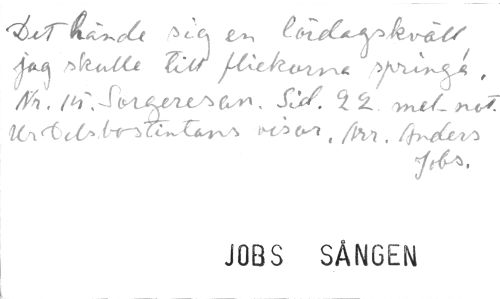 Det hände sig en lördagskväll
jag skulle till flickorna springa.
Nr. 15. Sorgeresan. Sid. 22 mel. not.
Ur Delsbostintans visor. Arr. Anders
Jobs.
JOBS SÅNGEN